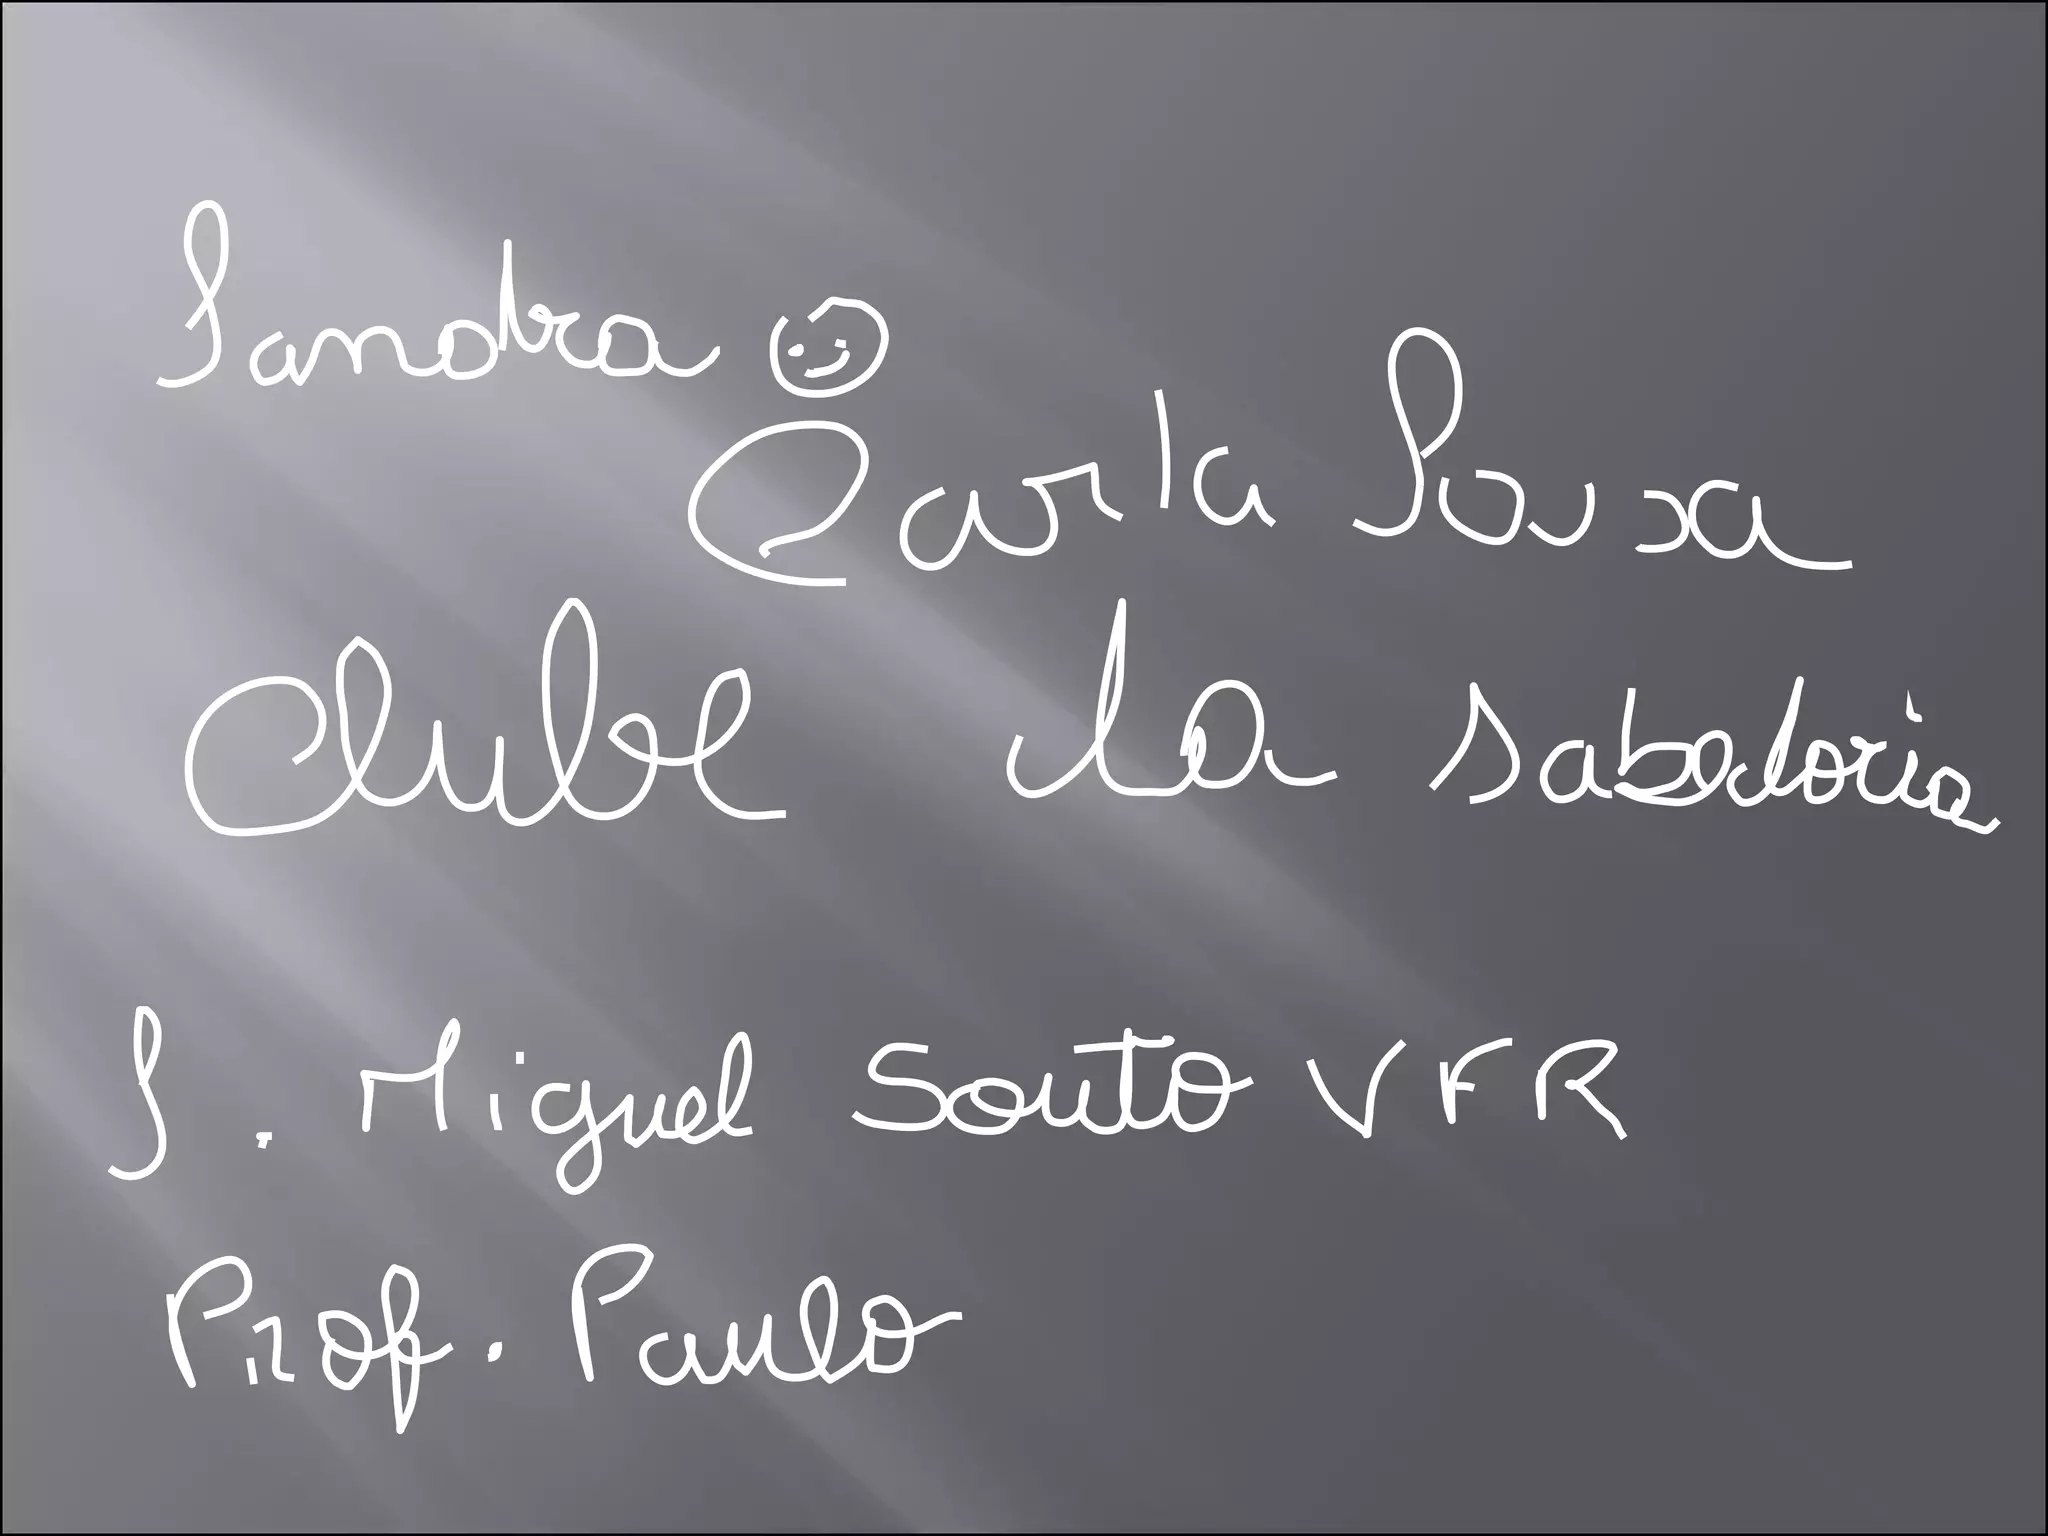 Sandra
Carla Sousa
Clube da sabedoria
S. Miguel Souto VFR
Prof. Paulo